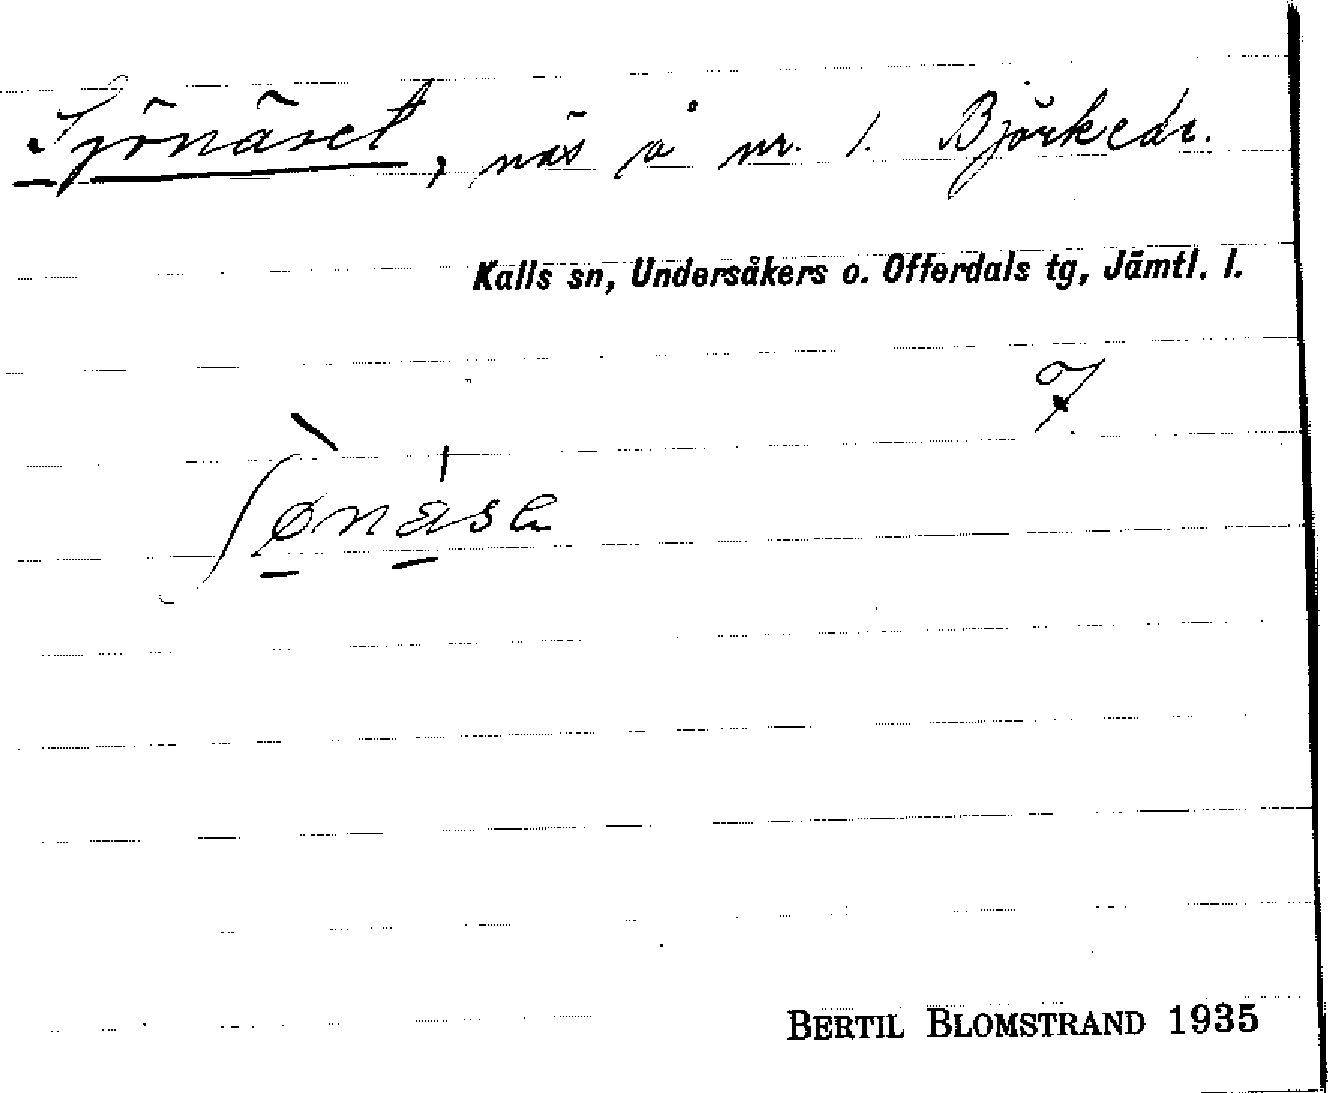 Sjönäset, näs å nr. 1. Björkede.
Kalls sn, Undersåkers o. Offerdals tg, Jämtl. l.
BERTIL BLOMSTRAND 1935